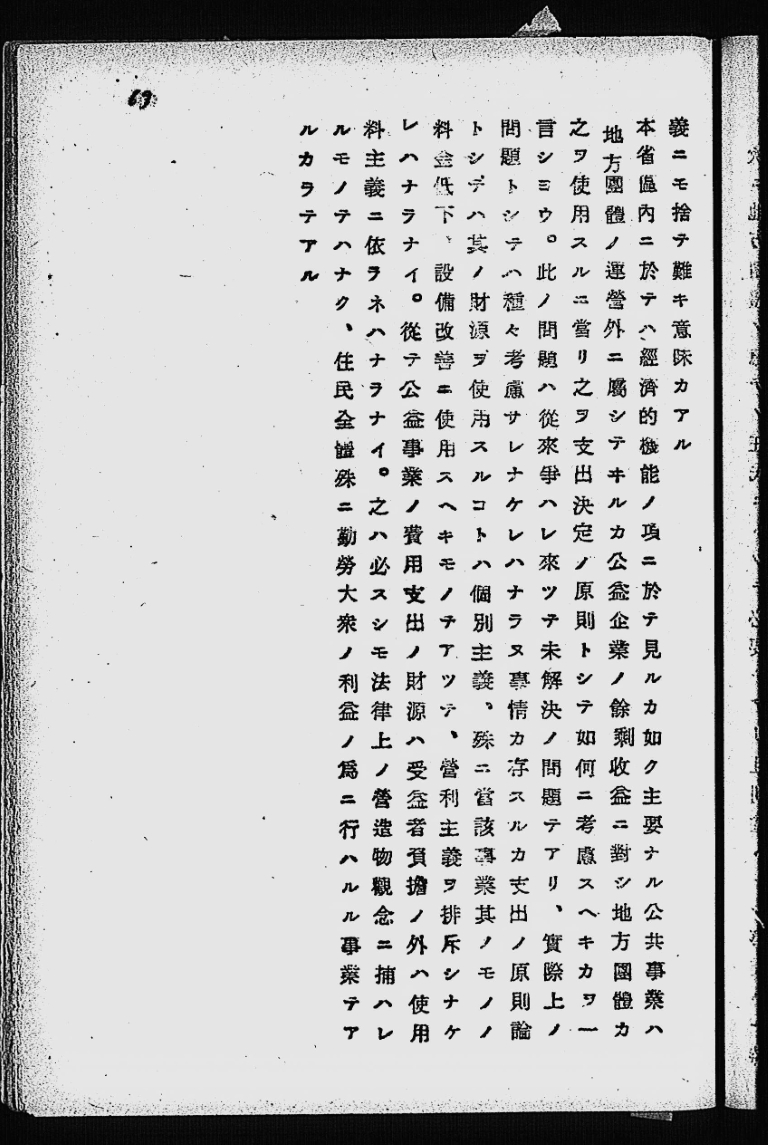 義ニモ捨テ難キ意味カアル
本省區內ニ於テハ經濟的機能ノ項ニ於テ見ルカ如ク主要ナル公共事業ハ
地方團體ノ運營外ニ屬シテヰルカ公益企業ノ餘剩收益ニ對シ地方團體カ
之ヲ使用スルニ當リ之ヲ支出決定ノ原則トシテ如何ニ考慮スヘキカヲ一
言シヨウ。此ノ問題ハ從來爭ハレ來ツテ未解決ノ問題テアリ、實際上ノ
問題トシテハ種々考慮サレナケレハナラヌ事情カ存スルカ支出ノ原則論
トシテハ其ノ財源ヲ使用スルコトハ個別主義、殊ニ當該事業其ノモノノ
料金低下、設備改善ニ使用スヘキモノテアツテ、營利主義ヲ排斥シナケ
レハナラナイ。從テ公益事業ノ費用支出ノ財源ハ受益者負擔ノ外ハ使用
料主義ニ依ラネハナラナイ。之ハ必スシモ法律上ノ營造物觀念ニ捕ハレ
ルモノテハナク、住民全體殊ニ勤勞大衆ノ利益ノ爲ニ行ハルル事業テア
ルカラテアル
69